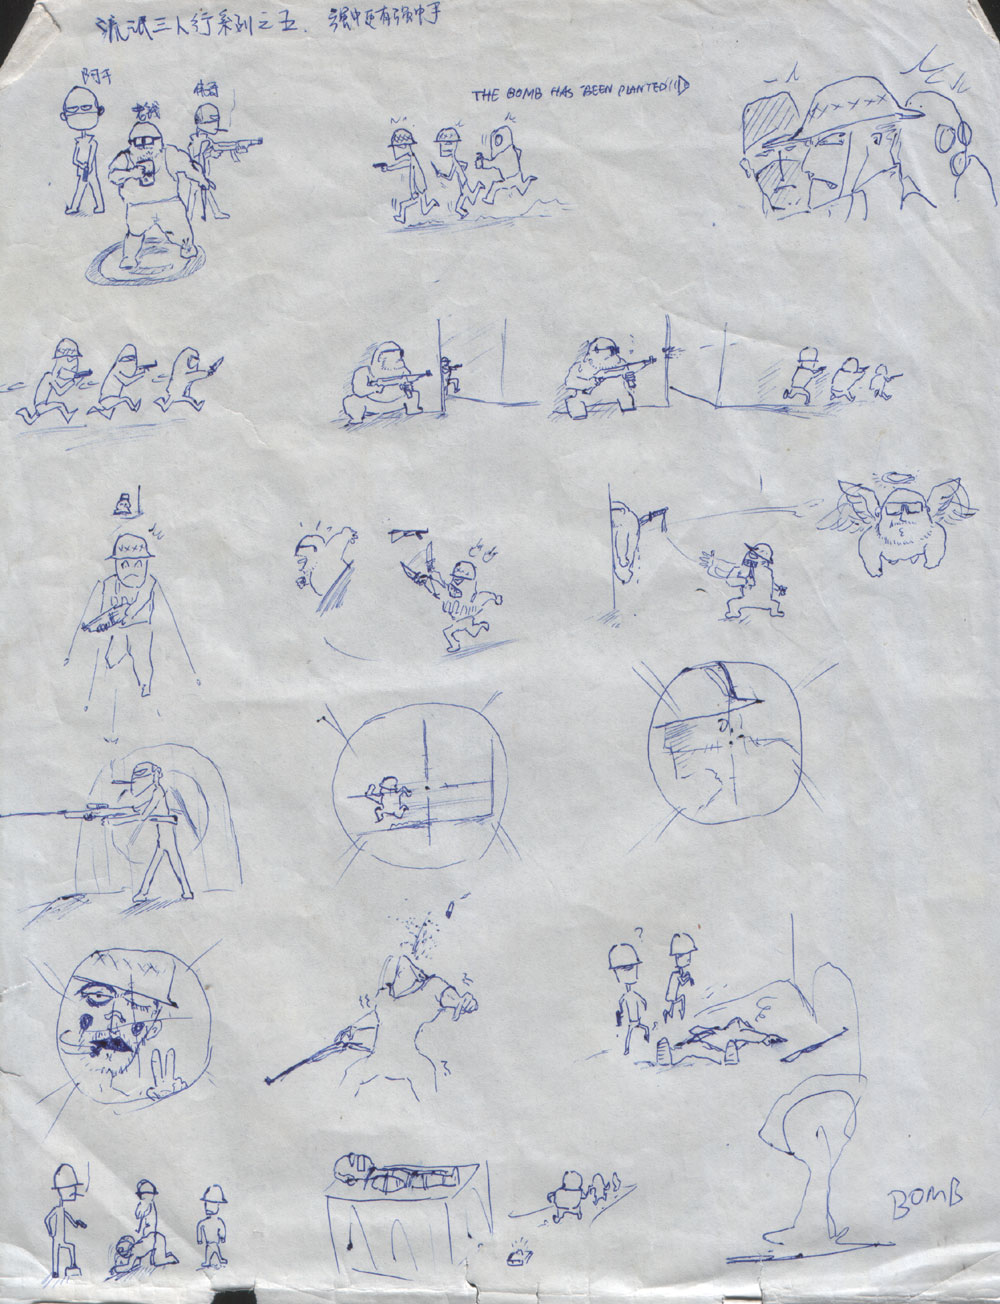 流氓三人行系列之五、强中还有强中手
阿平
老钱
THE BOMB HAS BEEN PLANTED!!!
BOMB